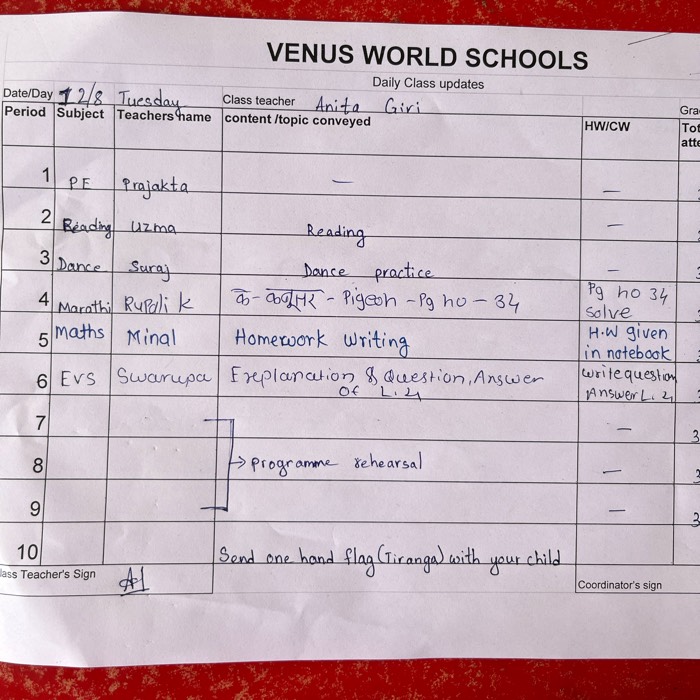 VENUS WORLD SCHOOLS
Daily Class updates
Date/Day 12/8 Tuesday Class teacher Anita Giri Gra
Period Subject Teachers name content /topic conveyed HW/CW Tot
atte
1 PE Prajakta — —
2 Reading Uzma Reading —
3 Dance Suraj Dance practice —
4 Marathi Rupali k क - कबूतर - Pigeon - Pg no - 34 Pg no 34
solve
5 Maths Minal Homework Writing H.W given
in notebook
6 EVS Swarupa Explanation & Question, Answer write question
Of L.4 Answer L. 4
7 — 3
8 → programme rehearsal —
9 — 3
10 Send one hand flag (Tiranga) with your child
lass Teacher's Sign Coordinator's sign